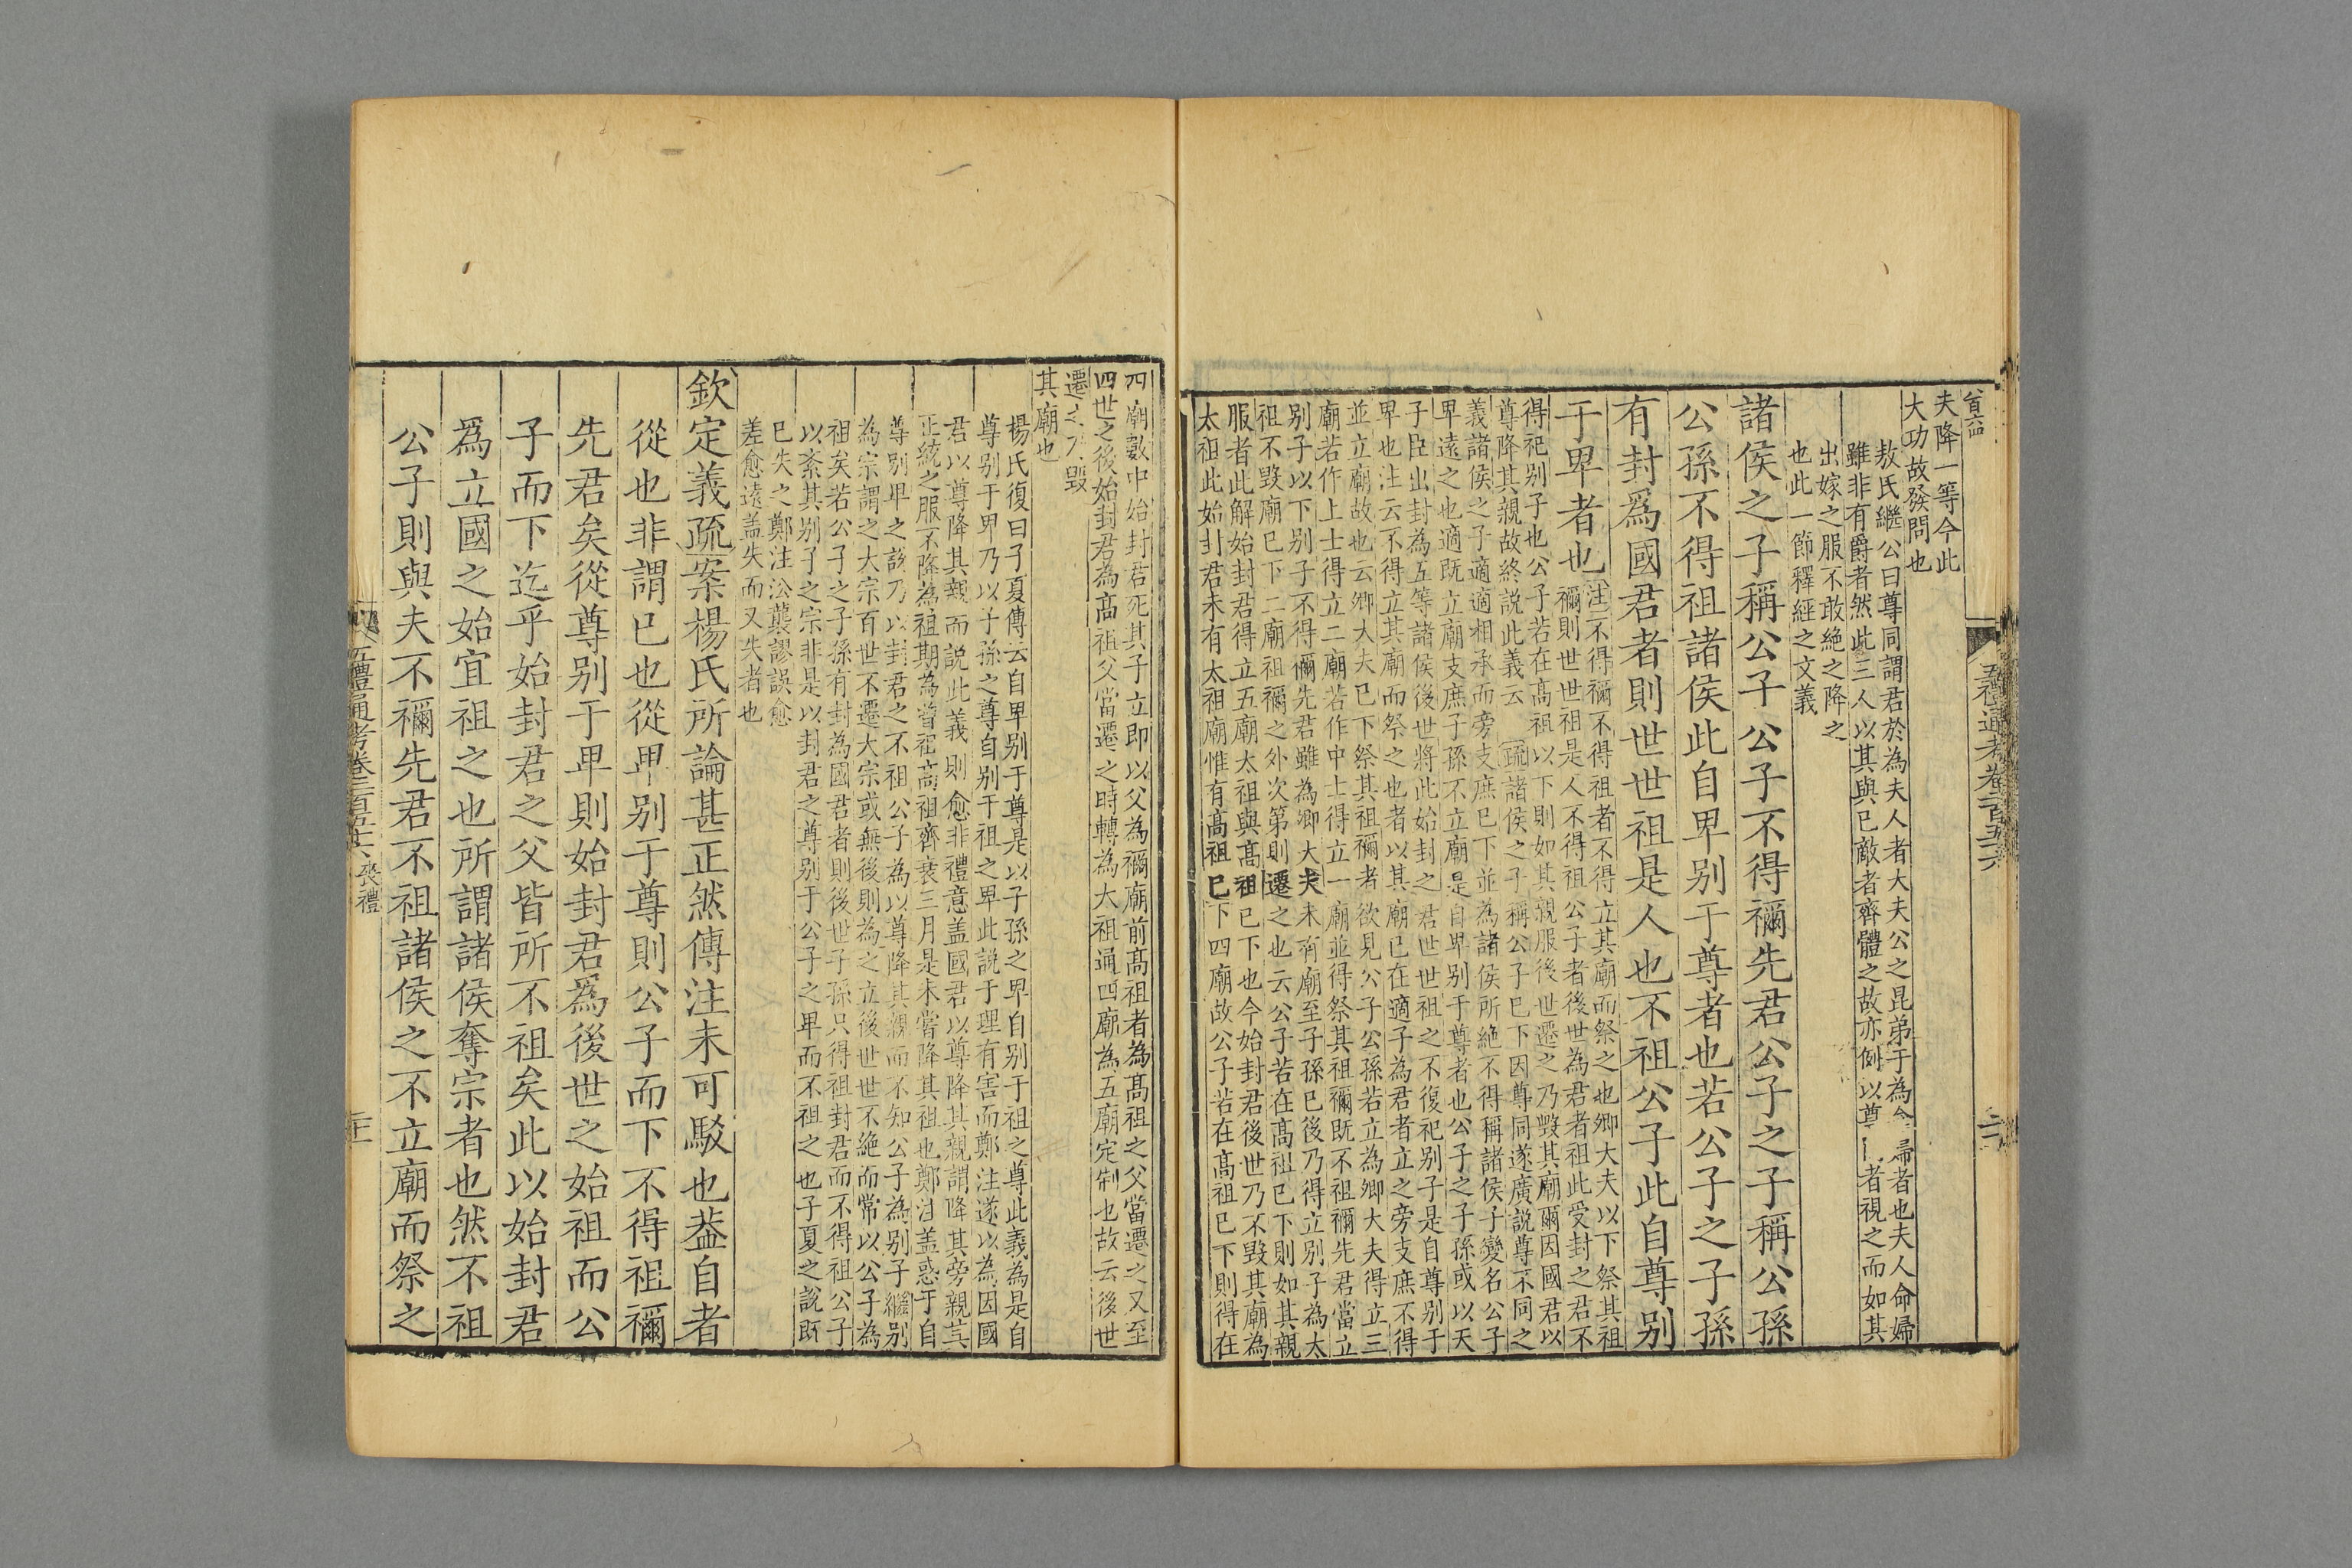 夫降一等今此
大功故發問也
敖氏繼公曰尊同謂君於為夫人者大夫公之昆弟于為命婦者也夫人命婦
雖非有爵者然此三人以其與已敵者齊體之故亦例以尊者視之而如其
出嫁之服不敢絶之降之
也此一節釋經之文義
諸侯之子稱公子公子不得禰先君公子之子稱公孫
公孫不得祖諸侯此自卑别于尊者也若公子之子孫
有封爲國君者則世世祖是人也不祖公子此自尊别
于卑者也
注不得禰不得祖者不得立其廟而祭之也卿大夫以下祭其祖
禰則世世祖是人不得祖公子者後世為君者祖此受封之君不
得祀别子也公子若在高祖以下則如其親服後世遷之乃毁其廟爾因國君以
尊降其親故終説此義云 疏諸侯之子稱公子已下因尊同遂廣説尊不同之
義諸侯之子適適相承而旁支庶已下並為諸侯所絶不得稱諸侯子變名公子
卑遠之也適既立廟支庶子孫不立廟是自卑别于尊者也公子之子孫或以天
子臣出封為五等諸侯後世將此始封之君世世祖之不復祀别子是自尊别于
卑也注云不得立其廟而祭之也者以其廟已在適子為君者立之旁支庶不得
並立廟故也云卿大夫已下祭其祖禰者欲見公子公孫若立為卿大夫得立三
廟若作上士得立二廟若作中士得立一廟並得祭其祖禰既不祖禰先君當立
别子以下别子不得禰先君雖為卿大夫未有廟至子孫已後乃得立别子為太
祖不毁廟已下二廟祖禰之外次第則遷之也云公子若在高祖已下則如其親
服者此解始封君得立五廟太祖與高祖已下也今始封君後世乃不毁其廟為
太祖此始封君未有太祖廟惟有高祖已下四廟故公子若在高祖已下則得在
四廟數中始封君死其子立即以父為禰廟前高祖者為高祖之父當遷之又至
四世之後始封君為高祖父當遷之時轉為太祖通四廟為五廟定制也故云後世
遷之乃毁
其廟也
楊氏復曰子夏傳云自卑别于尊是以子孫之卑自别于祖之尊此義為是自
尊别于卑乃以子孫之尊自别于祖之卑此説于理有害而鄭注遂以為因國
君以尊降其親而説此義則愈非禮意盖國君以尊降其親謂降其旁親其
正統之服不降為祖期為曾祖高祖齊衰三月是未嘗降其祖也鄭注盖惑于自
尊别卑之説乃以封君之不祖公子為以尊降其親而不知公子為别子繼别
為宗謂之大宗百世不遷大宗或無後則為之立後世世不絶而常以公子為
祖矣若公子之子孫有封為國君者則後世子孫只得祖封君而不得祖公子
以紊其别子之宗非是以封君之尊别于公子之卑而不祖之也子夏之説既
已失之鄭注㳂襲謬誤愈
差愈遠盖失而又失者也
欽定義疏案楊氏所論甚正然傳注未可駁也葢自者
從也非謂已也從卑别于尊則公子而下不得祖禰
先君矣從尊别于卑則始封君爲後世之始祖而公
子而下迄乎始封君之父皆所不祖矣此以始封君
爲立國之始宜祖之也所謂諸侯奪宗者也然不祖
公子則與夫不禰先君不祖諸侯之不立廟而祭之
五禮通考卷二百五十六 喪禮